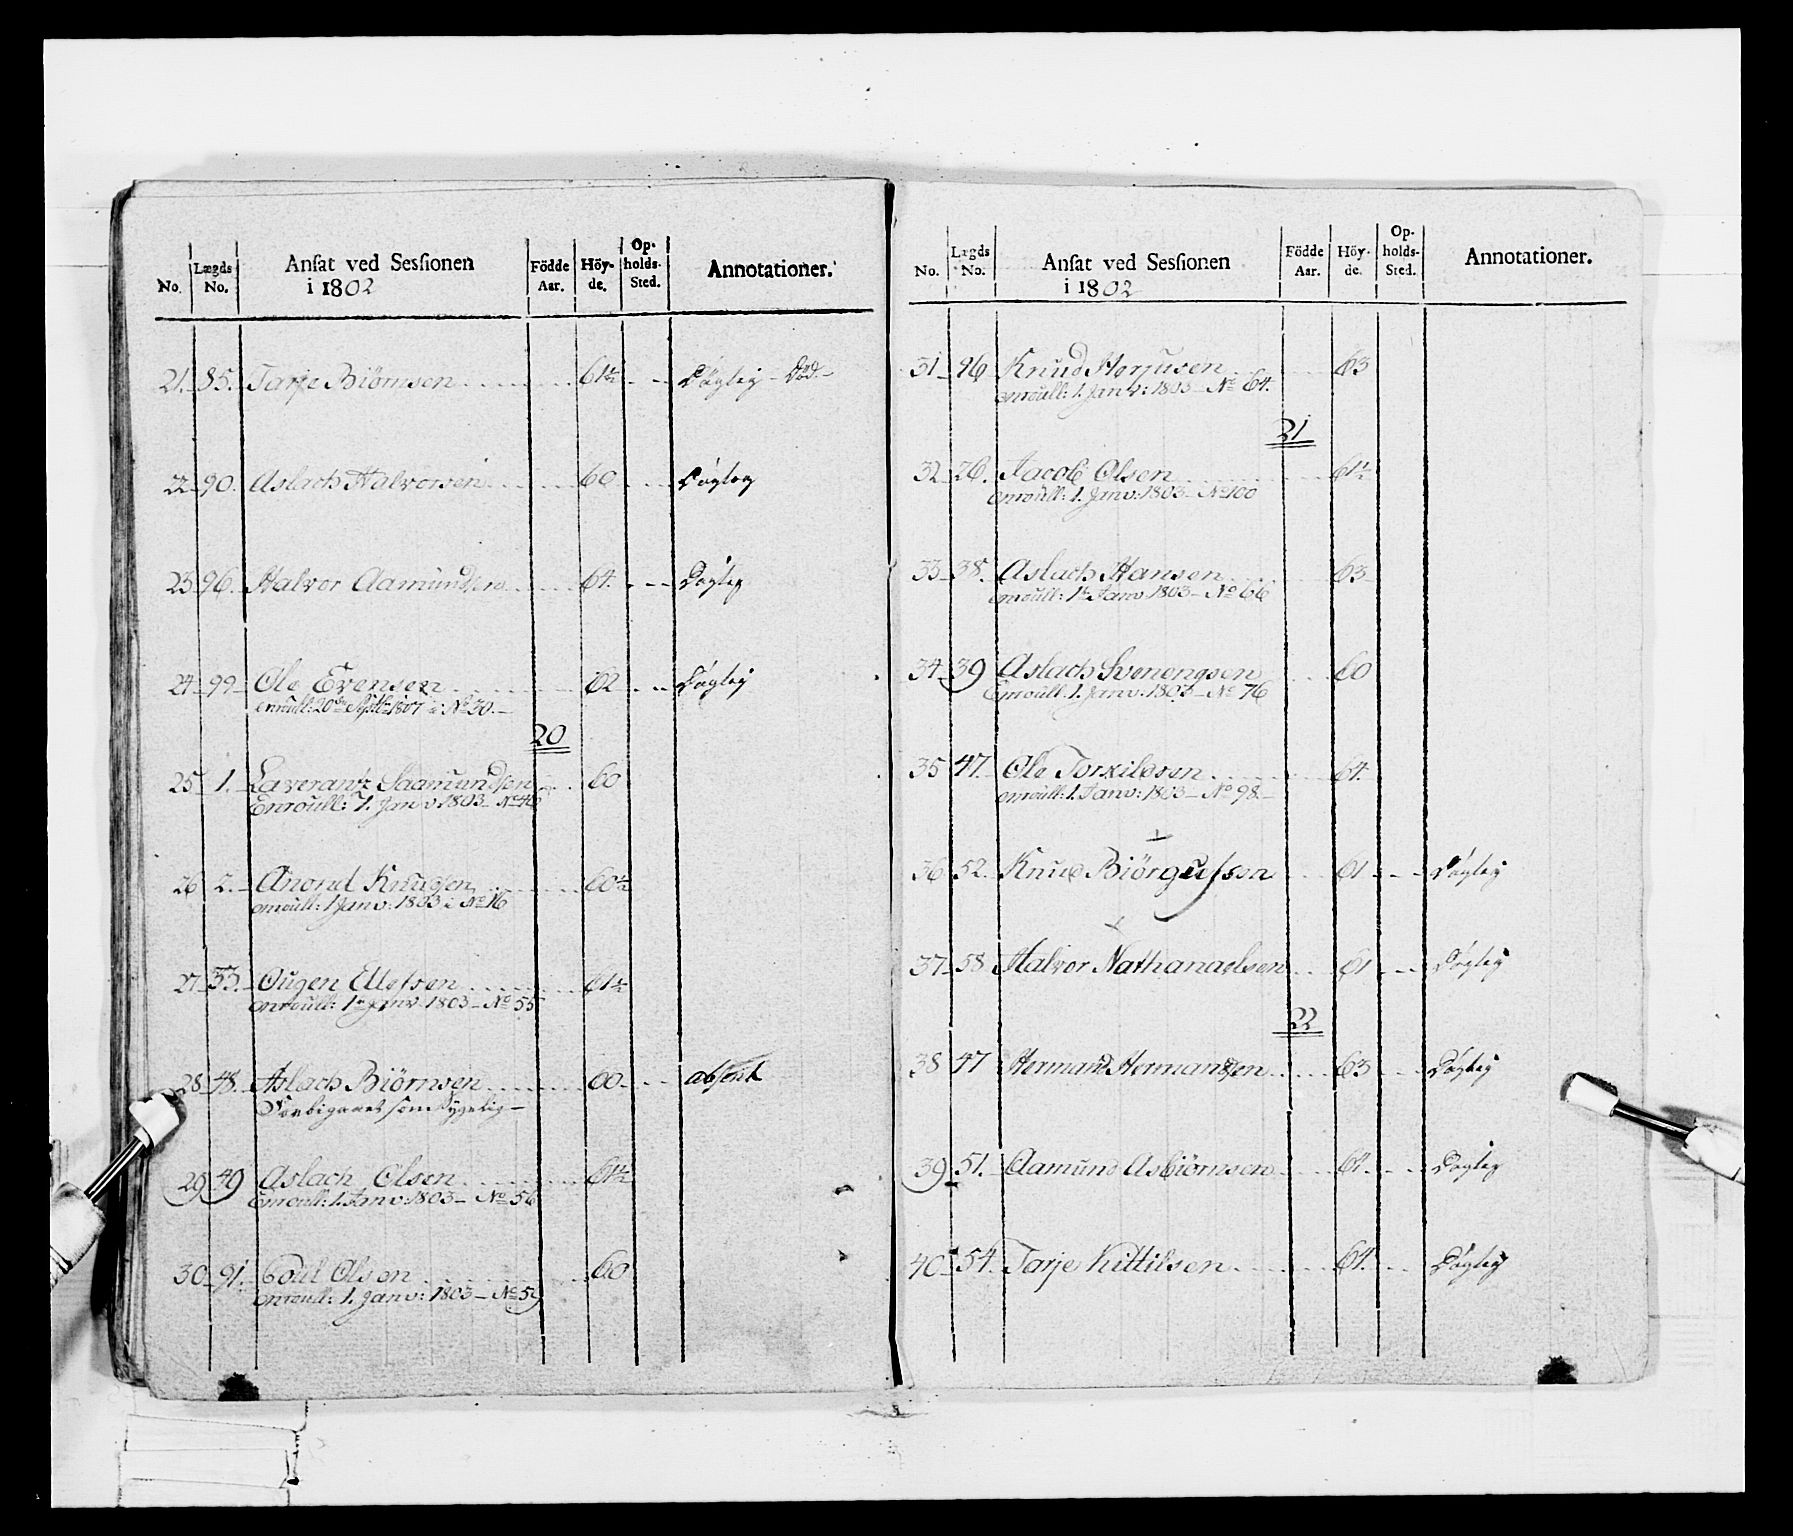 No. Lægds No. Ansat ved Sessionen i 1802 Födde Aar. Höyde. Opholds-Sted. Annotationer.
21. 85. Tarje Biörnsen 61½ Døgtig - Död -
22. 90. Aslach Halvorsen 60 Døgtig
23. 96. Halvor Aamundsen 64. Døgtig
24. 99. Ole Evensen 62 Døgtig
enroull: 1807 No 30.
20
25. 1. Laverantz Saamundsen 60
Enroull: 1. Janv 1803 - No 46
26 2. Anond Knudsen 60½
enroull: 1 Janv: 1803 No 16
27. 33. Ougen Ellefsen 61½
enroull: 1 Janv 1803 - No 55
28 48. Aslach Biörnsen 60 absent
Forbigaaet som Sygelig -
29 49 Aslach Olsen 61½
Enroull: 1. Janv: 1803 - No 56
30. 91. Poul Olsen 60
enroull: 1. Janv: 1803 - No 52
No. Lægds No. Ansat ved Sessionen i 1802 Födde Aar. Höyde. Opholds-Sted. Annotationer.
31 96 Knud Herjusen 63
enroull: 1. Janv: 1803 - No 64.
21
32 26. Jacob Olsen 61½
enroull: 1. Janv: 1803 - No 100
33 38. Aslach Hansen 63
enroull: 1 Janv 1803 - No 66
34 39 Aslach Svenungsen 60
Enroull: 1. Janv. 1803 - No 76
35 47. Ole Torkilsen 64.
enroull: 1. Janv: 1803 - No 98 -
+
36 52. Knud Biörgufsen 61 Døgtig
+
37 58 Halvor Nathanaelsen 61 Døgtig
22
38 47 Herman Hermansen 63 Døgtig
39 51. Aamund Asbiörnsen 61. Døgtig
40 54. Tarje Kittilsen 61. Døgtig